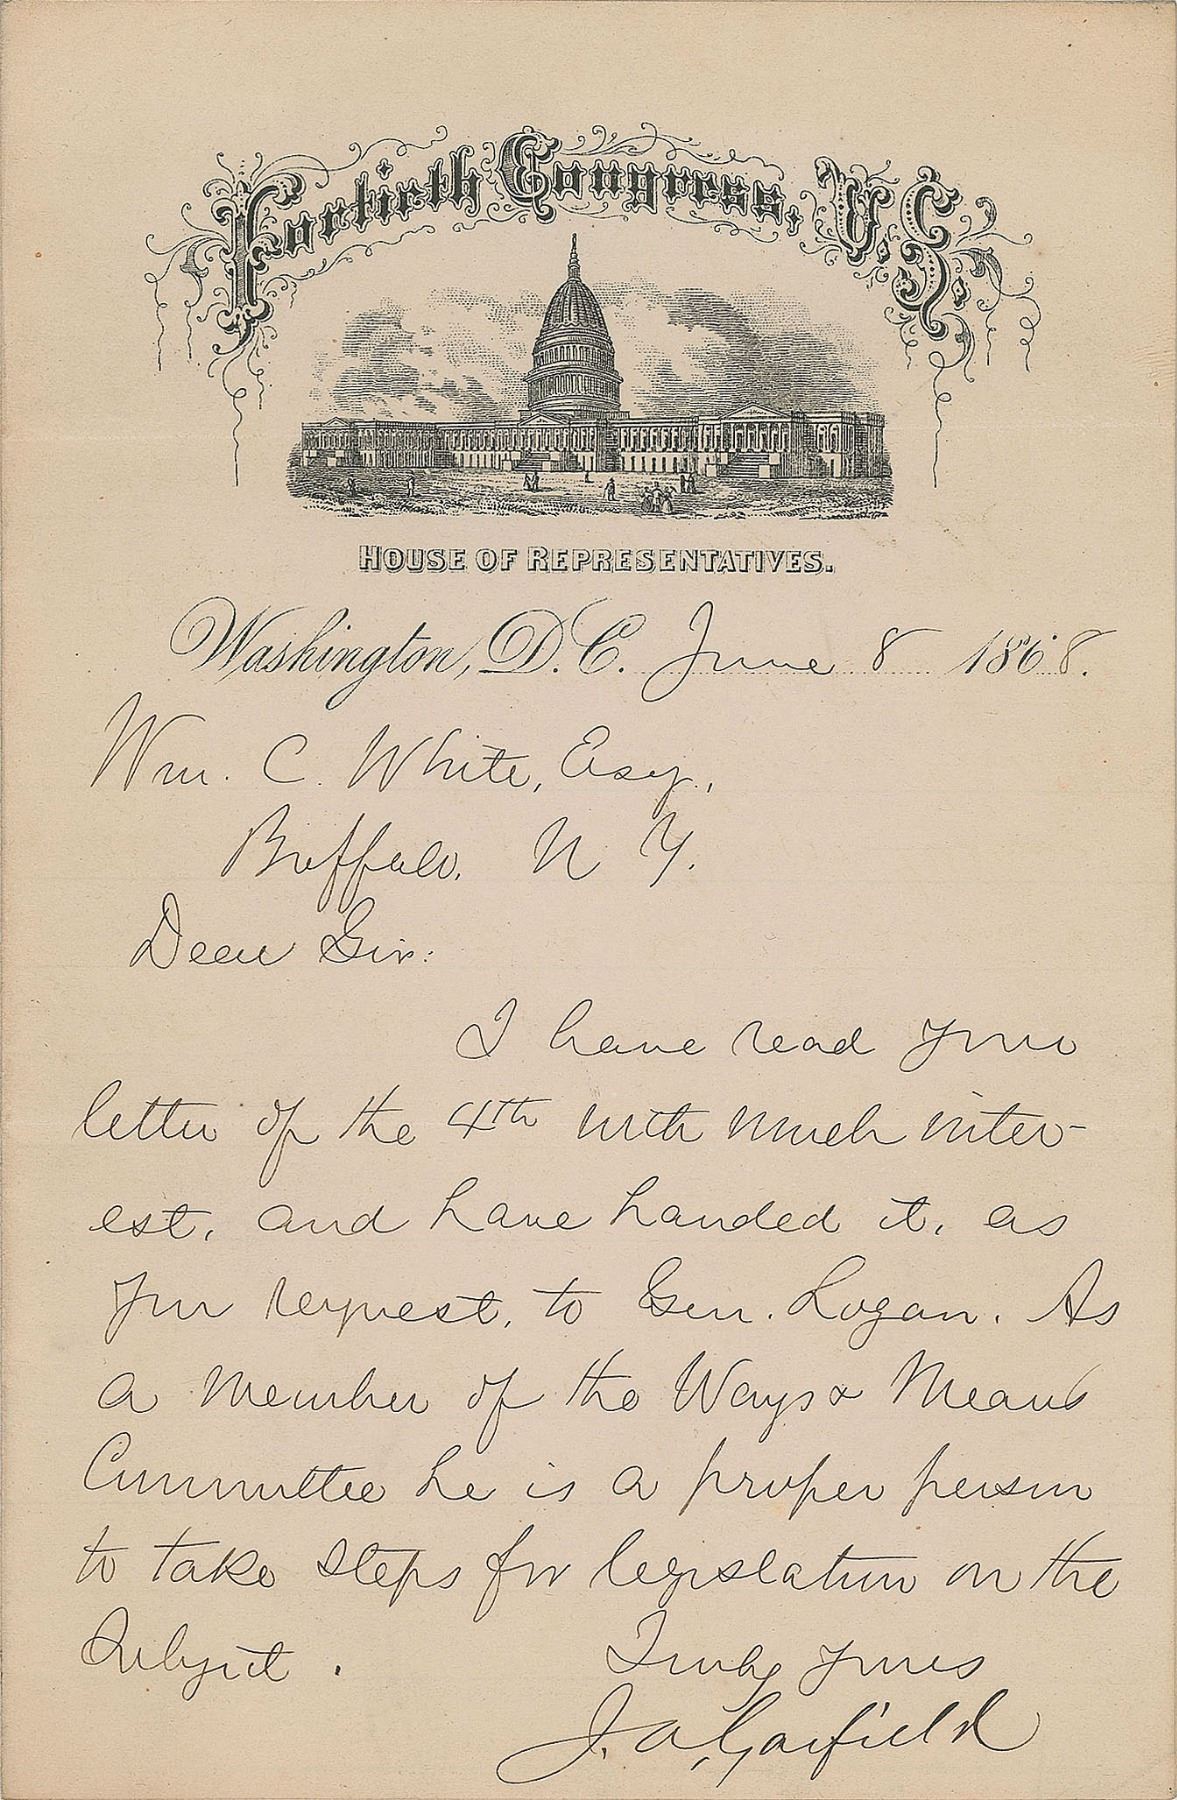 Fortieth Congress, U.S.
HOUSE OF REPRESENTATIVES.
Washington, D.C. June 8 1868.
Wm. C. White, Esq.,
Buffalo, N Y.
Dear Sir:
I have read your
letter of the 4th with much inter-
est, and have handed it, as
you request, to Gen. Logan. As
a member of the Ways & Means
Committee he is a proper person
to take steps for legislation on the
subject.
Truly yours
J. A. Garfield